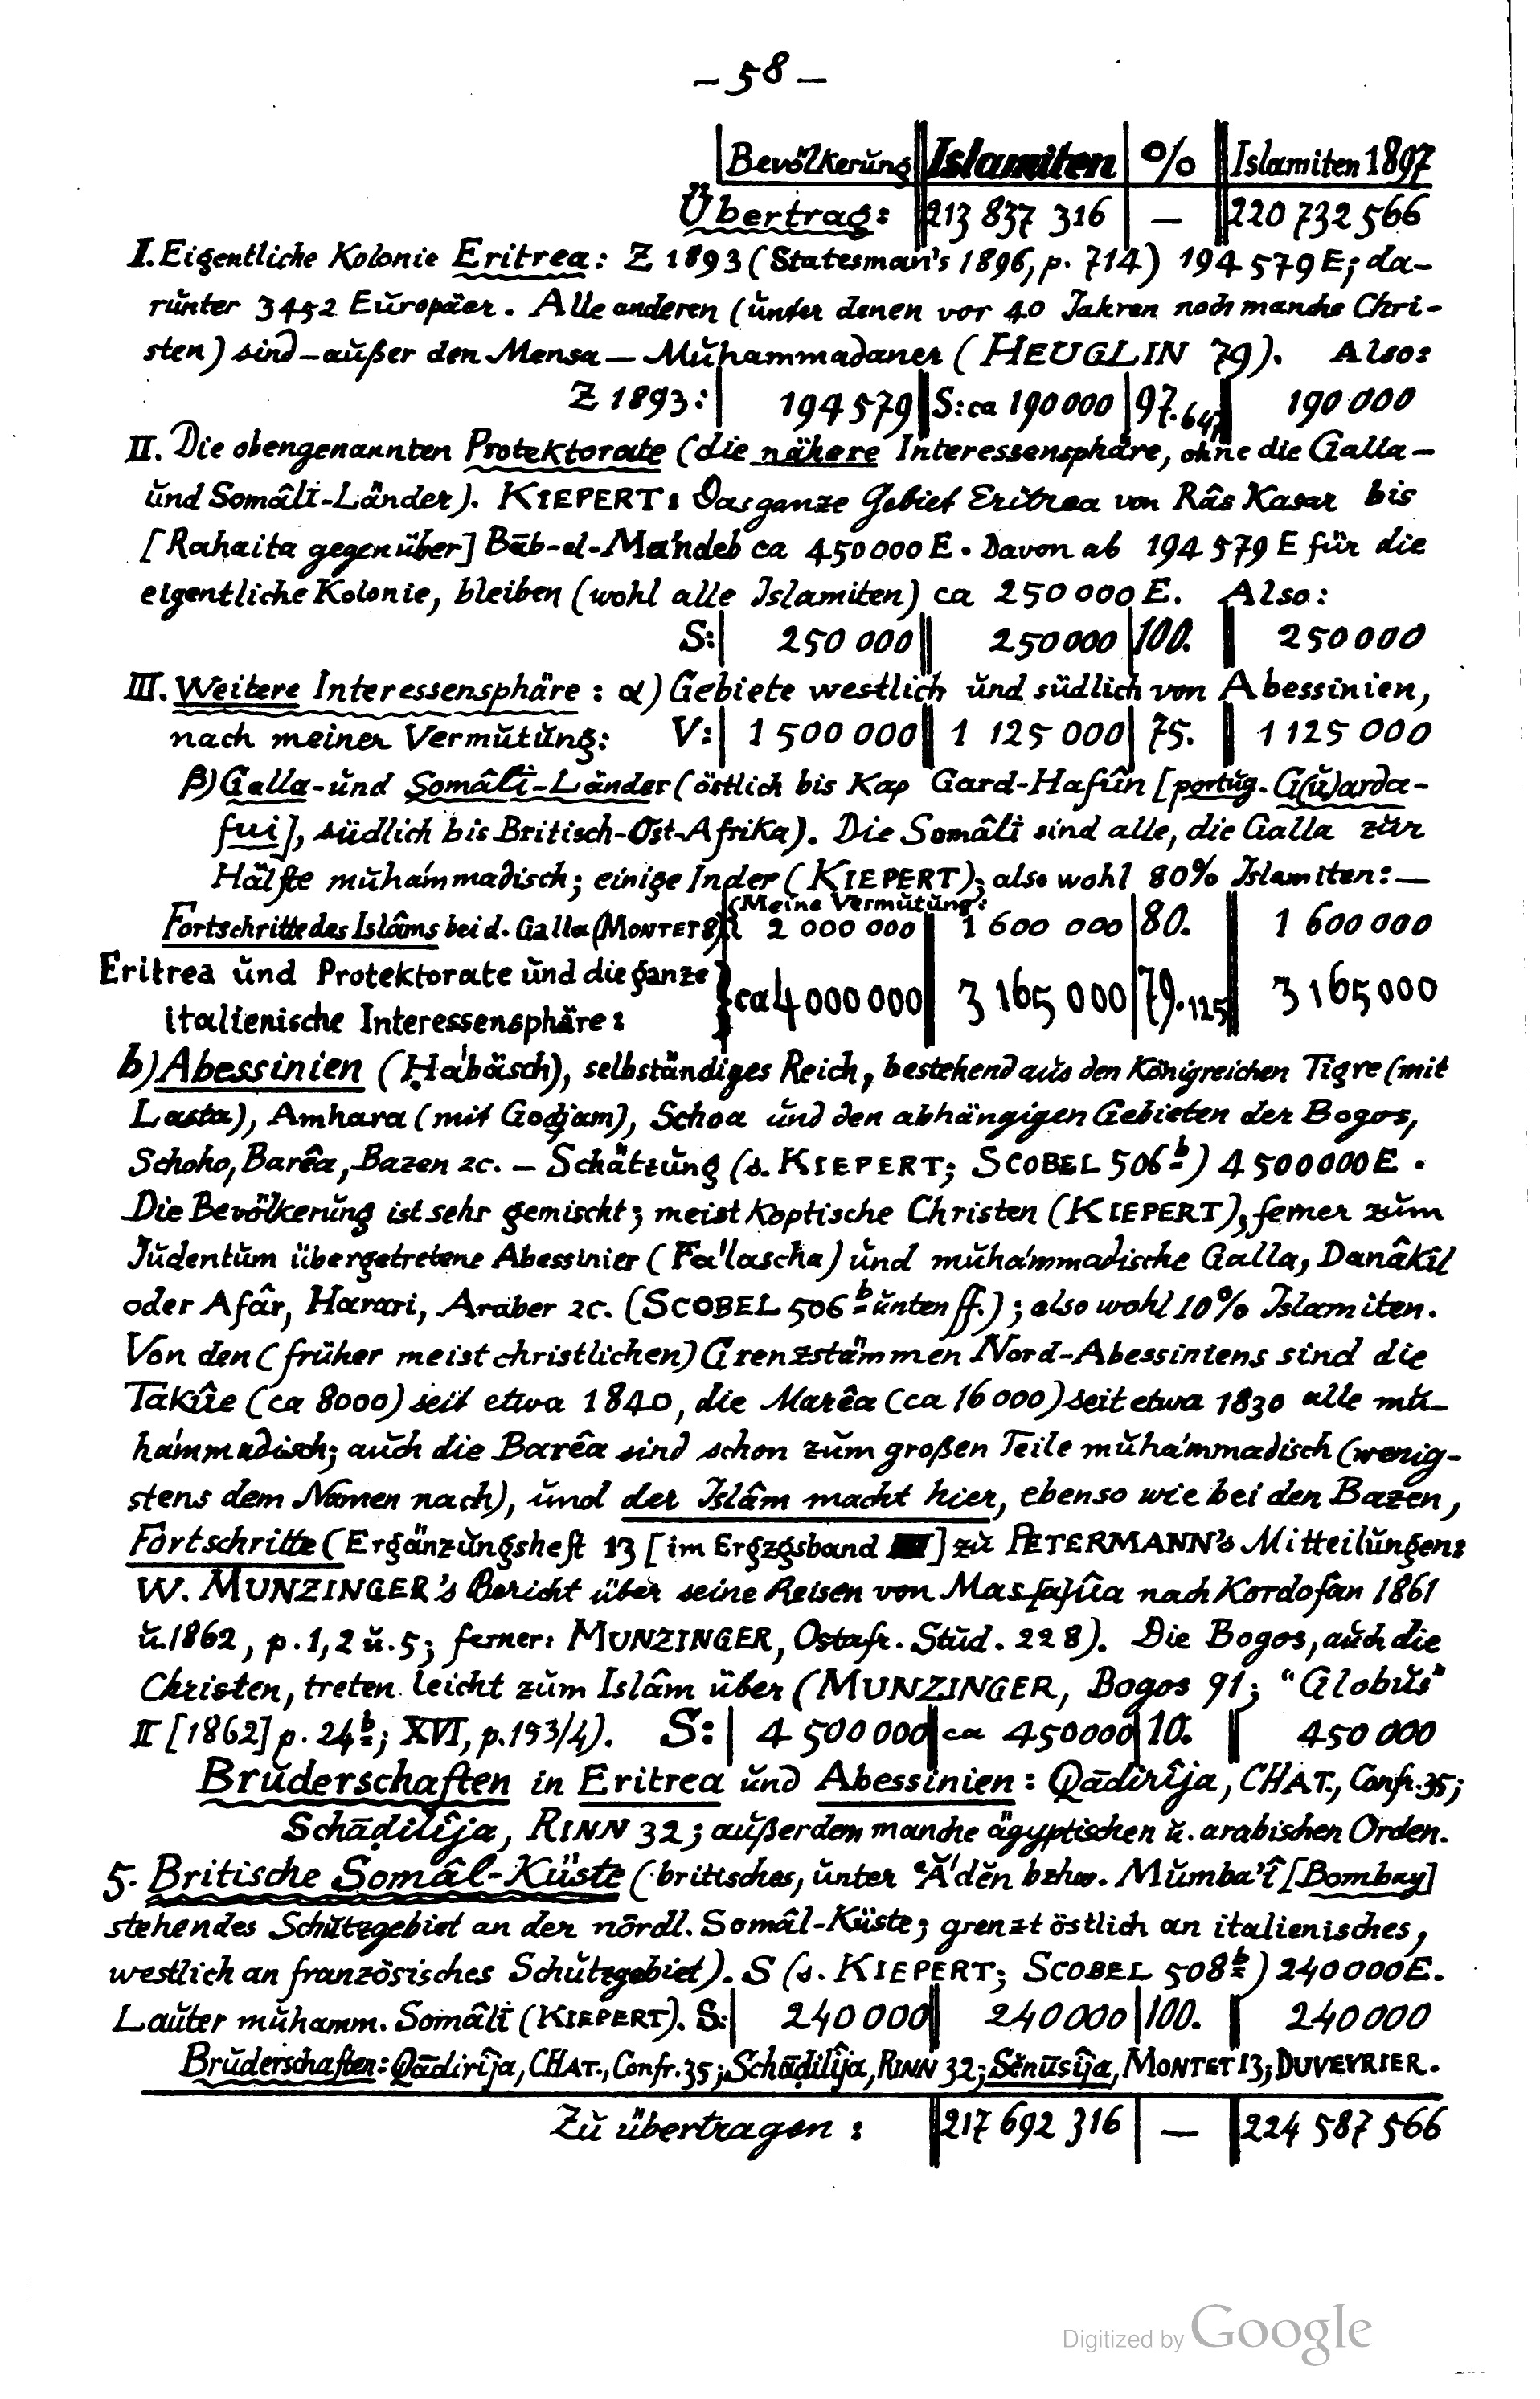 – 58 –
Bevölkerung Islamiten % Islamiten 1897
Übertrag: 213 837 316 — 220 732 566
I. Eigentliche Kolonie Eritrea: Z 1893 (Statesman's 1896, p. 714) 194 579 E; da-
runter 3452 Europäer. Alle anderen (unter denen vor 40 Jahren noch manche Chri-
sten) sind – außer den Mensa – Muhammadaner (HEUGLIN 79). Also:
Z 1893: 194 579 S: ca 190 000 97. 190 000
II. Die obengenannten Protektorate (die nähere Interessensphäre, ohne die Galla-
und Somâlî-Länder). KIEPERT: Das ganze Gebiet Eritrea von Râs Kasar bis
[Rahaita gegenüber] Bāb-el-Mándeb ca 450 000 E. Davon ab 194 579 E für die
eigentliche Kolonie, bleiben (wohl alle Islamiten) ca 250 000 E. Also:
S: 250 000 250 000 100. 250 000
III. Weitere Interessensphäre: α) Gebiete westlich und südlich von Abessinien,
nach meiner Vermutung: V: 1 500 000 1 125 000 75. 1 125 000
β) Galla- und Somâlî-Länder (östlich bis Kap Gard-Hafûn [portug. G(u)arda-
fui], südlich bis Britisch-Ost-Afrika). Die Somâlî sind alle, die Galla zur
Hälfte muhámmadisch; einige Inder (KIEPERT); also wohl 80% Islamiten: —
(Meine Vermutung:
Fortschritte des Islâms bei d. Galla (MONTET 8) 2 000 000 1 600 000 80. 1 600 000
Eritrea und Protektorate und die ganze
italienische Interessensphäre: } ca 4 000 000 3 165 000 79.125 3 165 000
b) Abessinien (Hábäsch), selbständiges Reich, bestehend aus den Königreichen Tigre (mit
Lasta), Amhara (mit Godjam), Schoa und den abhängigen Gebieten der Bogos,
Schoho, Barêa, Bazen 2c. – Schätzung (s. KIEPERT; SCOBEL 506b) 4 500 000 E.
Die Bevölkerung ist sehr gemischt; meist Koptische Christen (KIEPERT), ferner zum
Judentum übergetretene Abessinier (Fálascha) und muhámmadische Galla, Danâkîl
oder Afâr, Harari, Araber 2c. (SCOBEL 506b unten ff.); also wohl 10% Islamiten.
Von den (früher meist christlichen) Grenzstämmen Nord-Abessiniens sind die
Takûe (ca 8000) seit etwa 1840, die Marêa (ca 16 000) seit etwa 1830 alle mu-
hámmadisch; auch die Barêa sind schon zum großen Teile muhámmadisch (wenig-
stens dem Namen nach), und der Islâm macht hier, ebenso wie bei den Bazen,
Fortschritte (Ergänzungsheft 13 [im Ergzgsband III] zu PETERMANN's Mitteilungen:
W. MUNZINGER's Bericht über seine Reisen von nach Kordofân 1861
u. 1862, p. 1, 2 u. 5; ferner: MUNZINGER, Ostafr. Stud. 228). Die Bogos, auch die
Christen, treten leicht zum Islâm über (MUNZINGER, Bogos 91; "Globus"
II [1862] p. 24b; XVI, p. 193/4). S: 4 500 000 ca 450000 10. 450 000
Bruderschaften in Eritrea und Abessinien: Qādirîja, CHAT., Confr. 35;
Schāḍilîja, RINN 32; außerdem manche ägyptischen u. arabischen Orden.
5. Britische Somâl-Küste (britisches, unter ʿÁdĕn bzhw. Mumba'î [Bombay]
stehendes Schutzgebiet an der nördl. Somâl-Küste; grenzt östlich an italienisches,
westlich an französisches Schutzgebiet). S (s. KIEPERT; SCOBEL 508b) 240 000 E.
Lauter muhamm. Somâlî (KIEPERT). S: 240 000 240 000 100. 240 000
Bruderschaften: Qādirîja, CHAT., Confr. 35; Schāḍilîja, RINN 32; Sĕnūsîja, MONTET 13; DUVEYRIER.
Zu übertragen: 217 692 316 — 224 587 566
Digitized by Google